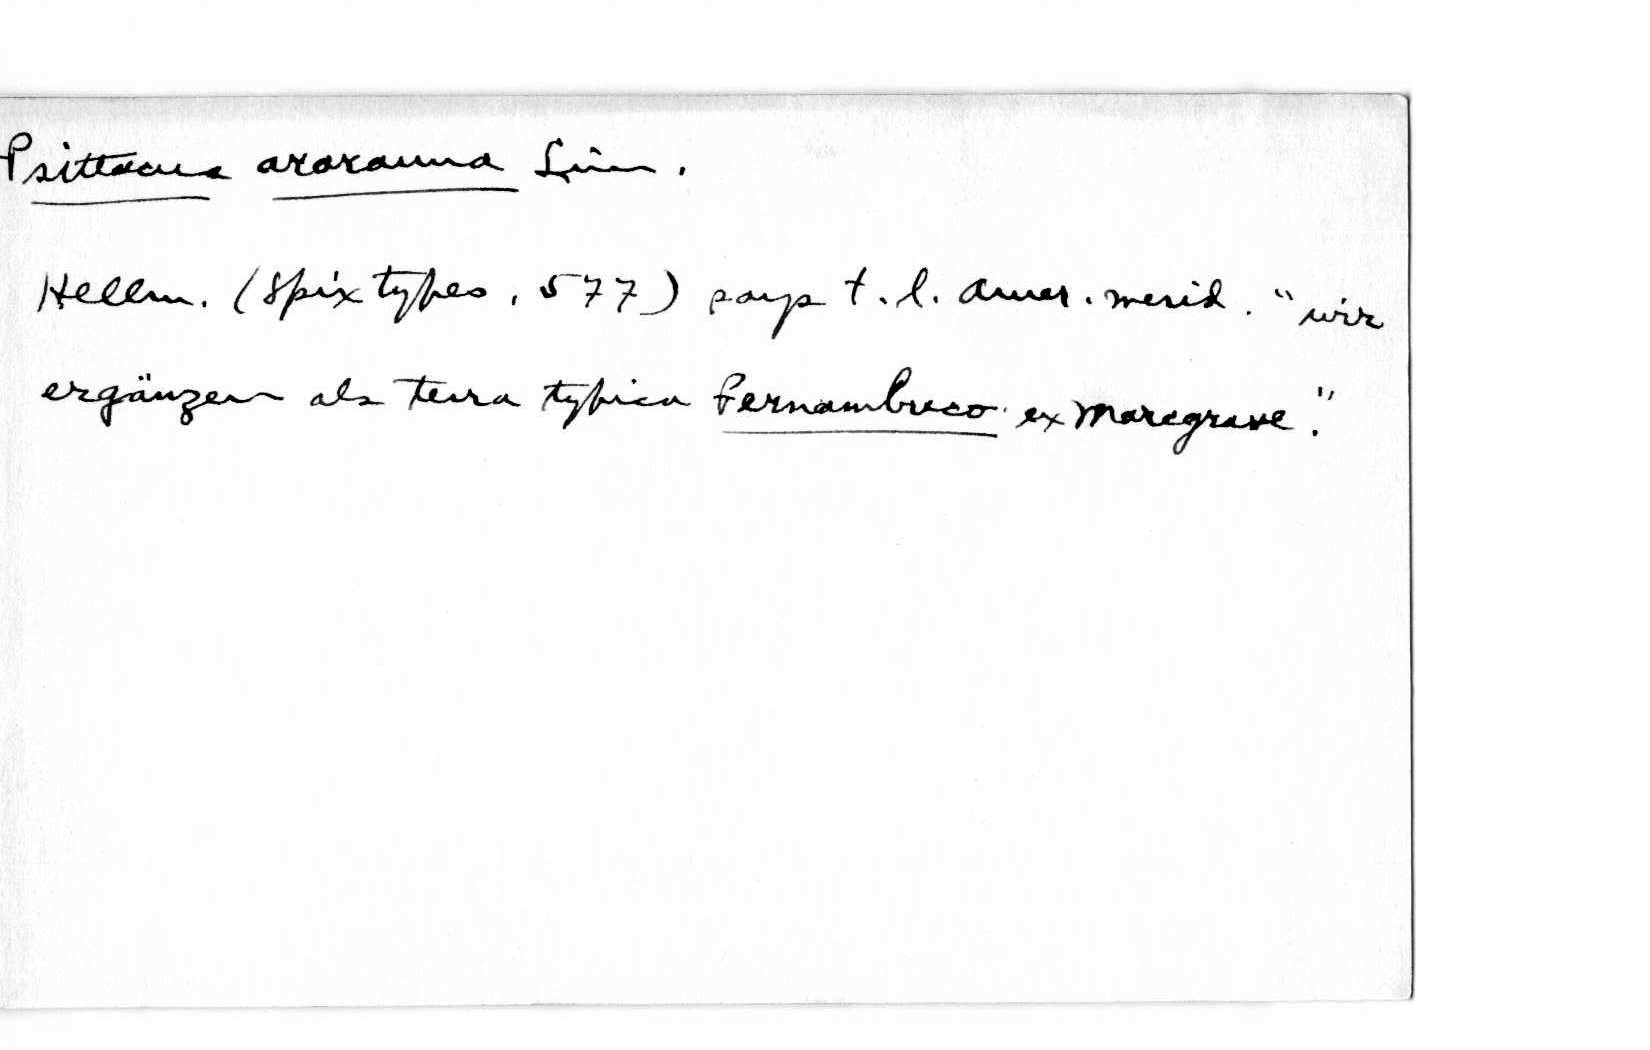 Psittacus ararauna Linn.
Hellm. (Spix types, 577) says t. l. Amer. merid. "wir
ergänzen als terra typica Pernambuco ex Marcgrave."